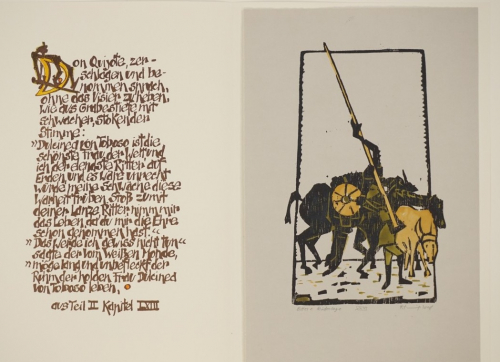 Don Quijote, zer-
schlagen und be-
nommen sprach,
ohne das Visier zu heben,
wie aus Grabestiefe mit
schwacher, stokender
Stimme:
"Dulcinea von Toboso ist die
schönste Frau der Welt und
ich der elendste Ritter auf
Erden und es wäre unrecht
würde meine Schwäche diese
Warheit trüben. Stoß mit
deiner Lanze, Ritter, nimm mir
das Leben da du mir die Ehre
schon genommen hast."
"Das werde ich gewiss nicht tun"
sagte der vom Weißen Monde,
"möge lang und unbefleckt der
Ruhm der holden Frau Dulcinea
von Toboso leben.
aus Teil II Kapitel LXIII